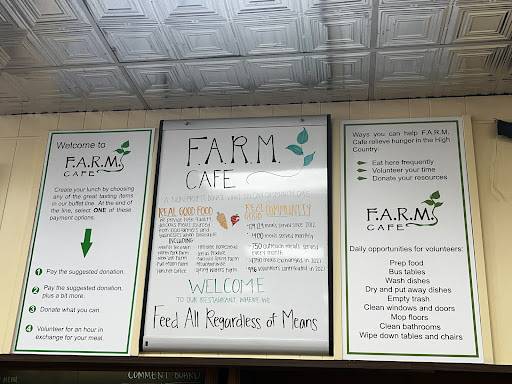 Welcome to
F.A.R.M.
CAFE
Create your lunch by choosing
any of the great tasting items
in our buffet line. At the end of
the line, select ONE of these
payment options.
1 Pay the suggested donation.
2 Pay the suggested donation,
plus a bit more.
3 Donate what you can.
4 Volunteer for an hour in
exchange for your meal.
F.A.R.M.
CAFE
REAL GOOD FOOD
INCLUDING
REAL COMMUNITY
GOOD
meals served since 2012
meals served monthly
750 outreach meals served
every month
WELCOME
TO OUR RESTAURANT WHERE WE
Feed All Regardless of Means
Ways you can help F.A.R.M.
Cafe relieve hunger in the High
Country:
Eat here frequently
Volunteer your time
Donate your resources
F.A.R.M.
CAFE
Daily opportunities for volunteers:
Prep food
Bus tables
Wash dishes
Dry and put away dishes
Empty trash
Clean windows and doors
Mop floors
Clean bathrooms
Wipe down tables and chairs
COMMENT BOARD